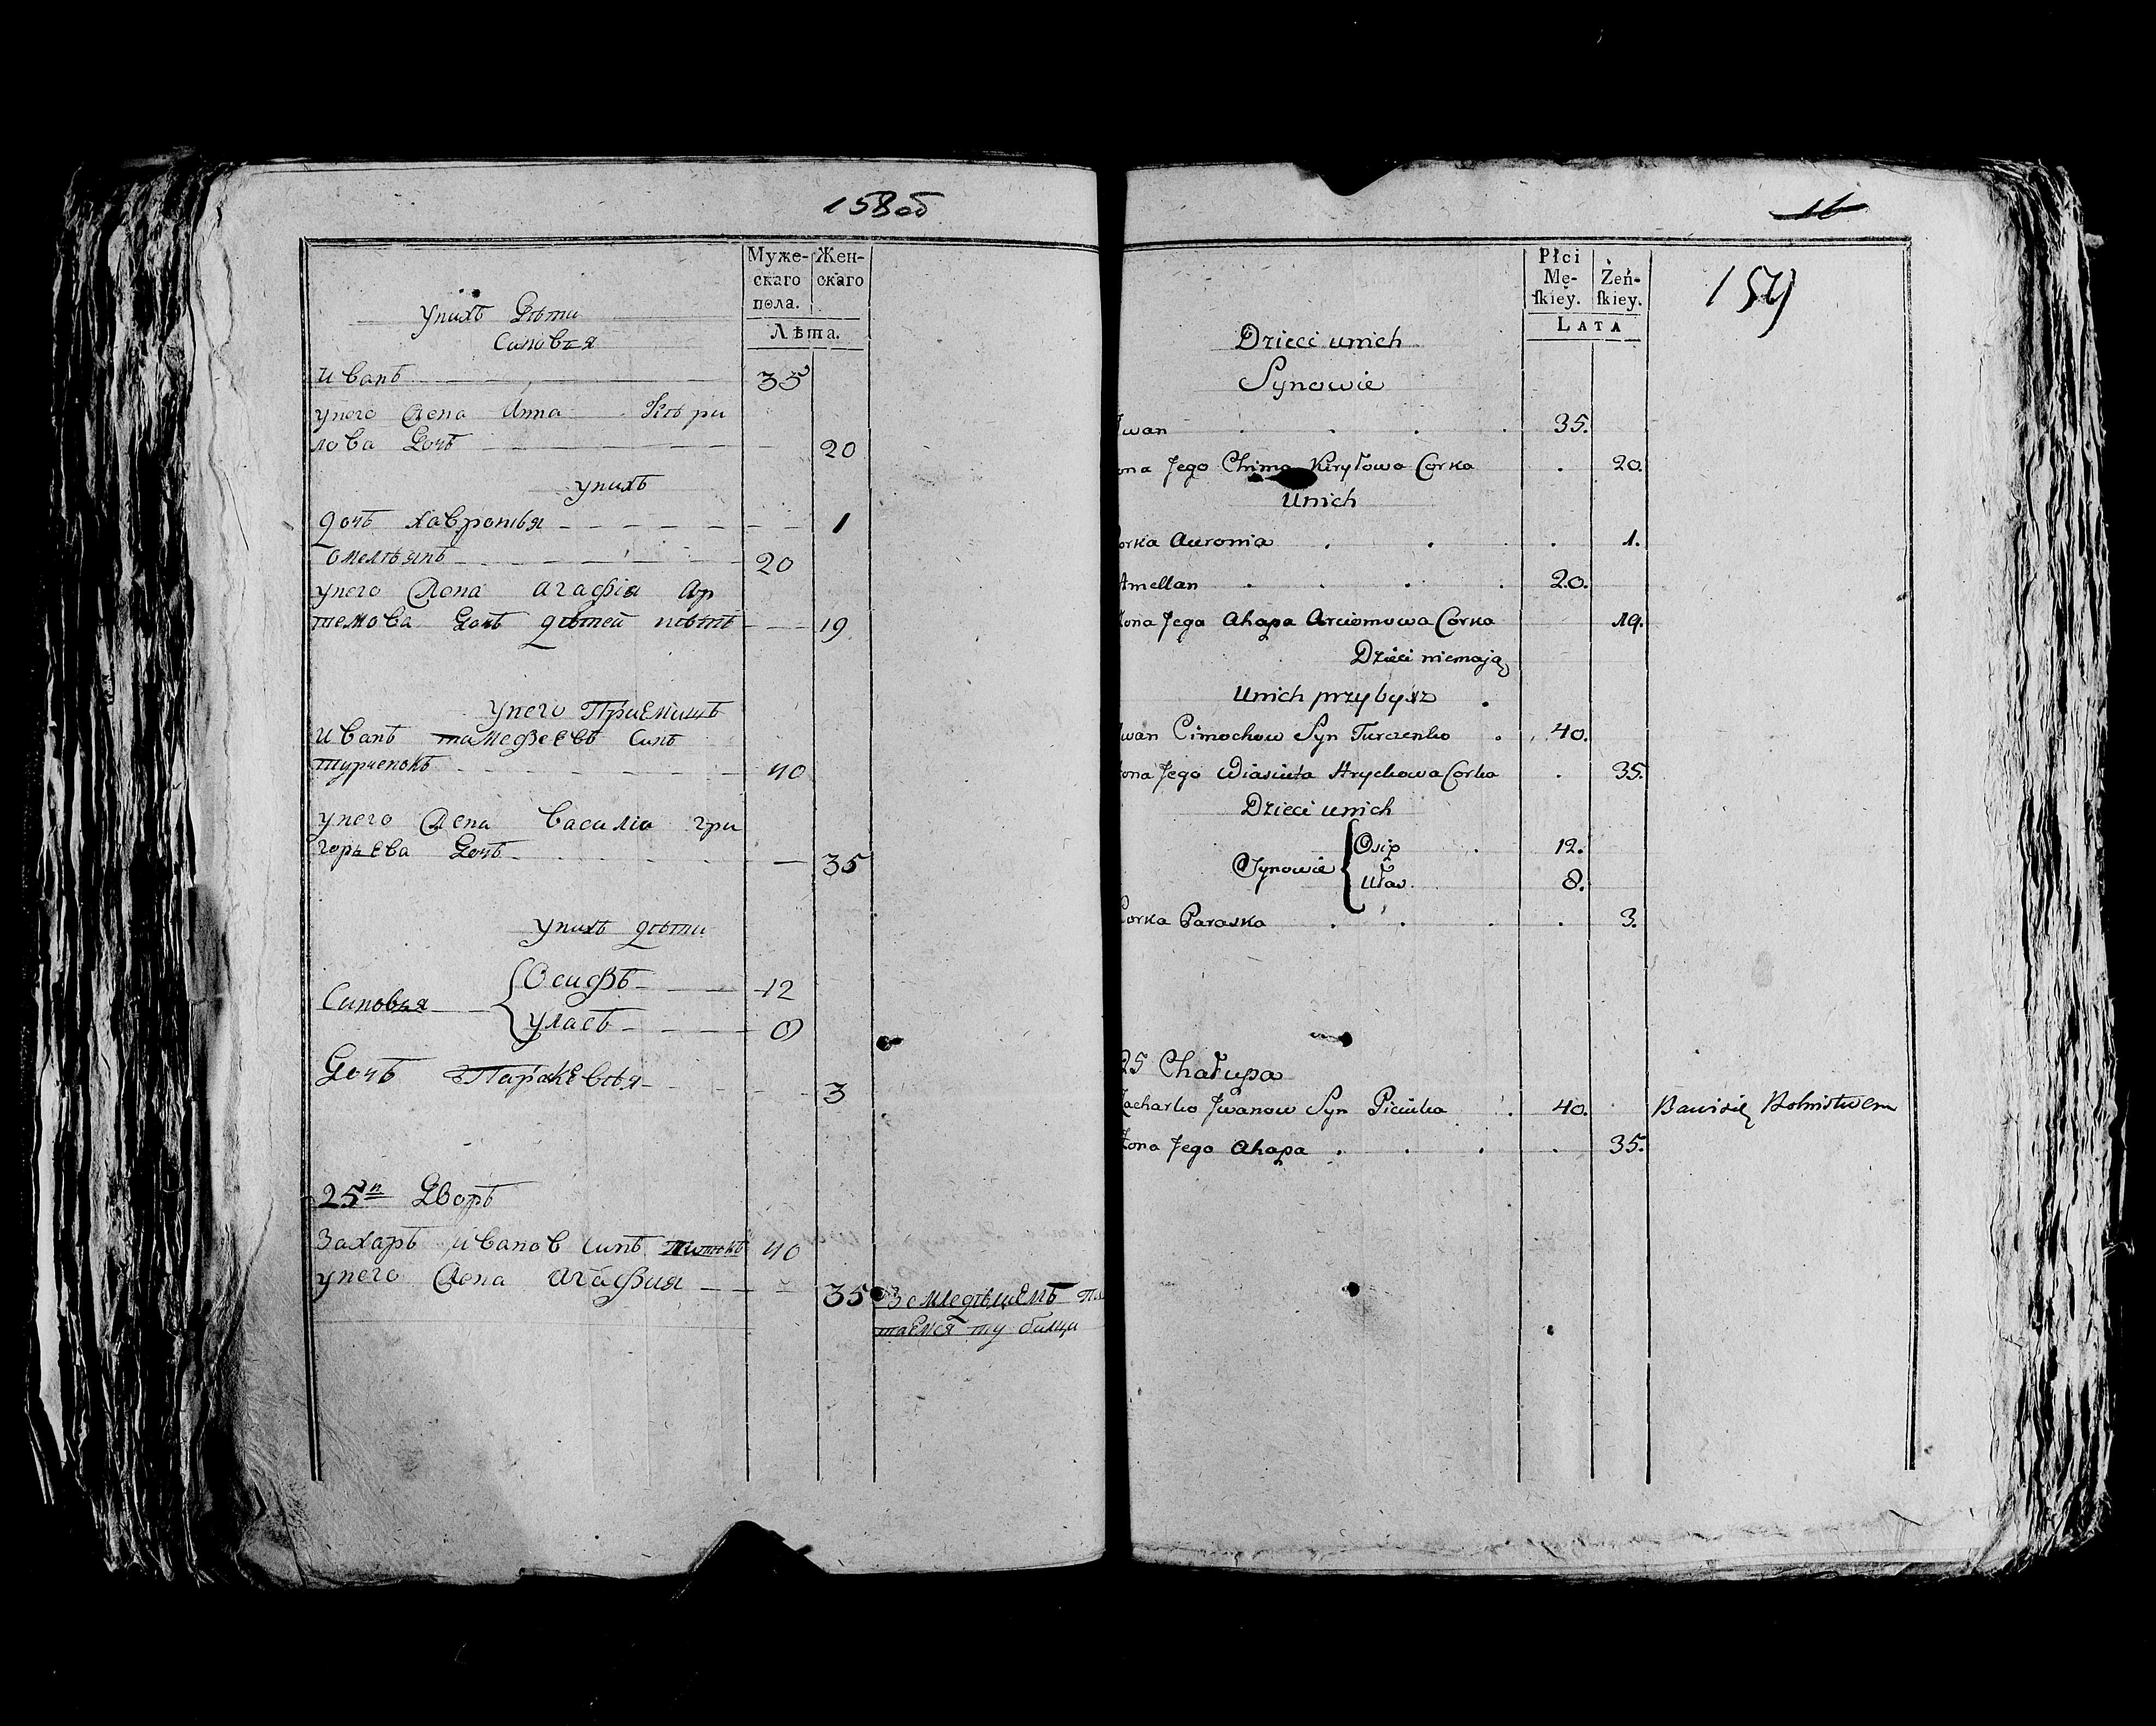 158 об
Муже-
скаго
пола.
Жен-
скаго
Лѣта.
унихъ Дѣти
Сыновья
иванъ 35
унего Жена Анна Кѣри
лова Дочь 20
унихъ
дочь хавронья 1
омелѣянъ 20
унего Жена агафія ар
темова Дочь дѣтей нѣтъ 19
унего Приемышъ
иванъ тамефеевъ сынъ
турченокъ 40
унего Жена василіа гри
горьева Дочь 35
унихъ дѣти
Сыновья
Осифъ 12
уласъ 8
Дочь Паракевѣя 3
25й Дворъ
Захаръ иванов сынъ 40
унего Жена агафия 35
Земледелиемъ
таемся ту
16
159
Płci
Mę-
skiey.
Żeń-
skiey.
LATA
Dzieci unich
Synowie
Iwan 35.
ona Jego Chima Kiryłowa Corka 20.
Unich
orka Auronia 1.
Amellan 20.
Zona Jego Ahapa Arciomowa Corka 19.
Dzieci niemają
Unich przybysz
Iwan Cimochow Syn Turczenko 40.
ona Jego Wiasiuta Hryckowa Corka 35.
Dzieci unich
Synowie
Osip 12.
Ułas 8.
Corka Paraska 3.
25 Chałupa
Zacharko Jwanow Syn 40. Bawi się Rolnistwem
Zona Jego Ahapa 35.